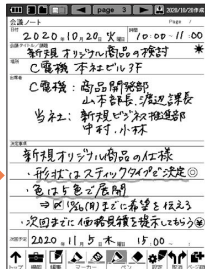 page 3
2020/10/20作成
会議ノート
Page /
日付 2020年10月20日 火曜 時間 10:00-11:00
会議タイトル/議題
新規オリジナル商品の検討
場所
C電機 本社ビル3F
出席者
C電機:商品開発部
山本部長、渡辺課長
当社:新規ビジネス推進部
中村、小林
決定事項
新規オリジナル商品の仕様
・形状はスティックタイプで決定◎
・色は5色で展開
(月)までに希望を伝える
・次回までに価格見積を提示してもらう
次回予定 2020年11月5日木曜 15:00 ~
トップ 編集 マーカー ペン 設定